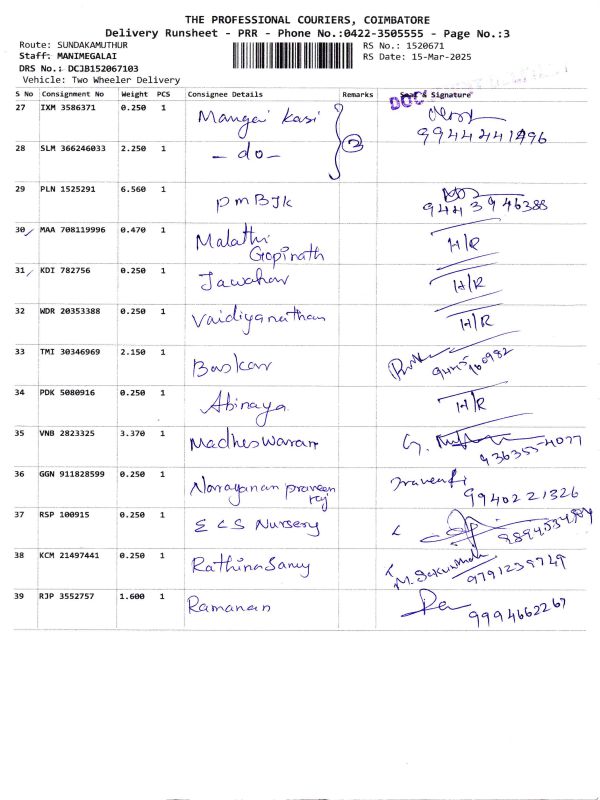 THE PROFESSIONAL COURIERS, COIMBATORE
Delivery Runsheet - PRR - Phone No.:0422-3505555 - Page No.:3
Route: SUNDAKAMUTHUR RS No.: 1520671
Staff: MANIMEGALAI RS Date: 15-Mar-2025
DRS No.: DCJB152067103
Vehicle: Two Wheeler Delivery
S No Consignment No Weight PCS Consignee Details Remarks Seal & Signature
DOC
27 IXM 3586371 0.250 1 Mangai Kasi
9944441496
28 SLM 366246033 2.250 1 - do - 2
29 PLN 1525291 6.560 1 PMBJK
9443946388
30 MAA 708119996 0.470 1 Malathi Gopinath H/R
31 KDI 782756 0.250 1 Jawahar H/R
32 WDR 20353388 0.250 1 Vaidiyanathan H/R
33 TMI 30346969 2.150 1 Baskar 9445160982
34 PDK 5080916 0.250 1 Abinaya H/R
35 VNB 2823325 3.370 1 Madheswaran
936355-4077
36 GGN 911828599 0.250 1 Narayanan praveen raj
9940221326
37 RSP 100915 0.250 1 E C S Nursery
38 KCM 21497441 0.250 1 Rathinasamy
9791239749
39 RJP 3552757 1.600 1 Ramanan
9994662267